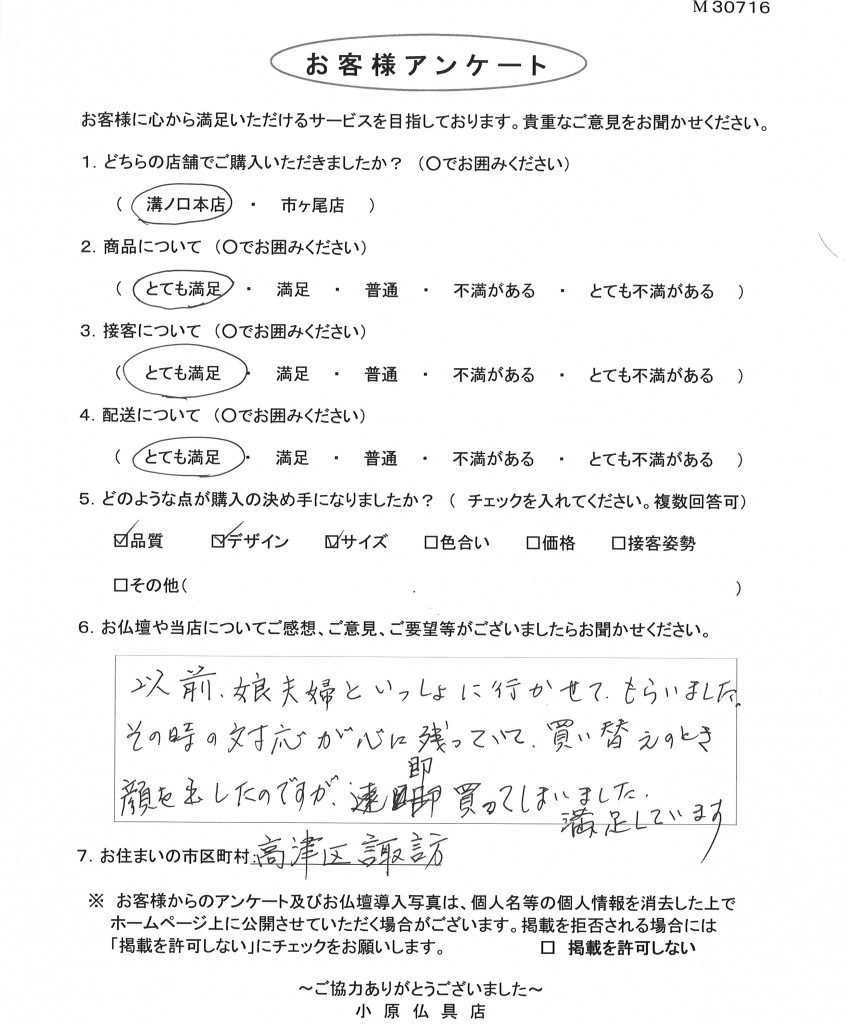 M30716
お客様アンケート
お客様に心から満足いただけるサービスを目指しております。貴重なご意見をお聞かせください。
1. どちらの店舗でご購入いただきましたか？ （〇でお囲みください）
（ 溝ノ口本店 ・ 市ヶ尾店 ）
2. 商品について （〇でお囲みください）
（ とても満足 ・ 満足 ・ 普通 ・ 不満がある ・ とても不満がある ）
3. 接客について （〇でお囲みください）
（ とても満足 ・ 満足 ・ 普通 ・ 不満がある ・ とても不満がある ）
4. 配送について （〇でお囲みください）
（ とても満足 ・ 満足 ・ 普通 ・ 不満がある ・ とても不満がある ）
5. どのような点が購入の決め手になりましたか？ （ チェックを入れてください。複数回答可）
☑品質 ☑デザイン ☑サイズ □色合い □価格 □接客姿勢
□その他（ ）
6. お仏壇や当店についてご感想、ご意見、ご要望等がございましたらお聞かせください。
以前、娘夫婦といっしょに行かせて、もらいました。
その時の対応が心に残っていて、買い替えのとき
顔を出したのですが、即買ってしまいました。
満足しています
7. お住まいの市区町村：高津区諏訪
※ お客様からのアンケート及びお仏壇導入写真は、個人名等の個人情報を消去した上で
ホームページ上に公開させていただく場合がございます。掲載を拒否される場合には
「掲載を許可しない」にチェックをお願いします。 □ 掲載を許可しない
～ご協力ありがとうございました～
小原仏具店